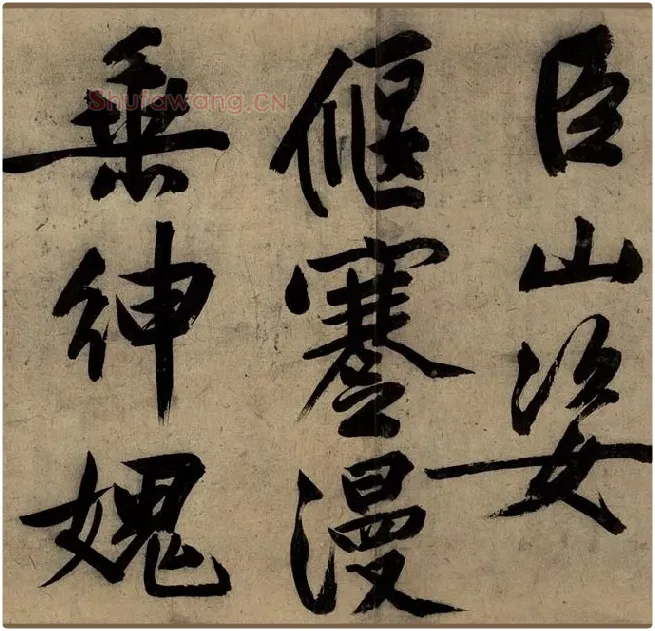 臣山姿
偃蹇漫
垂紳媿
ShufaWang.CN